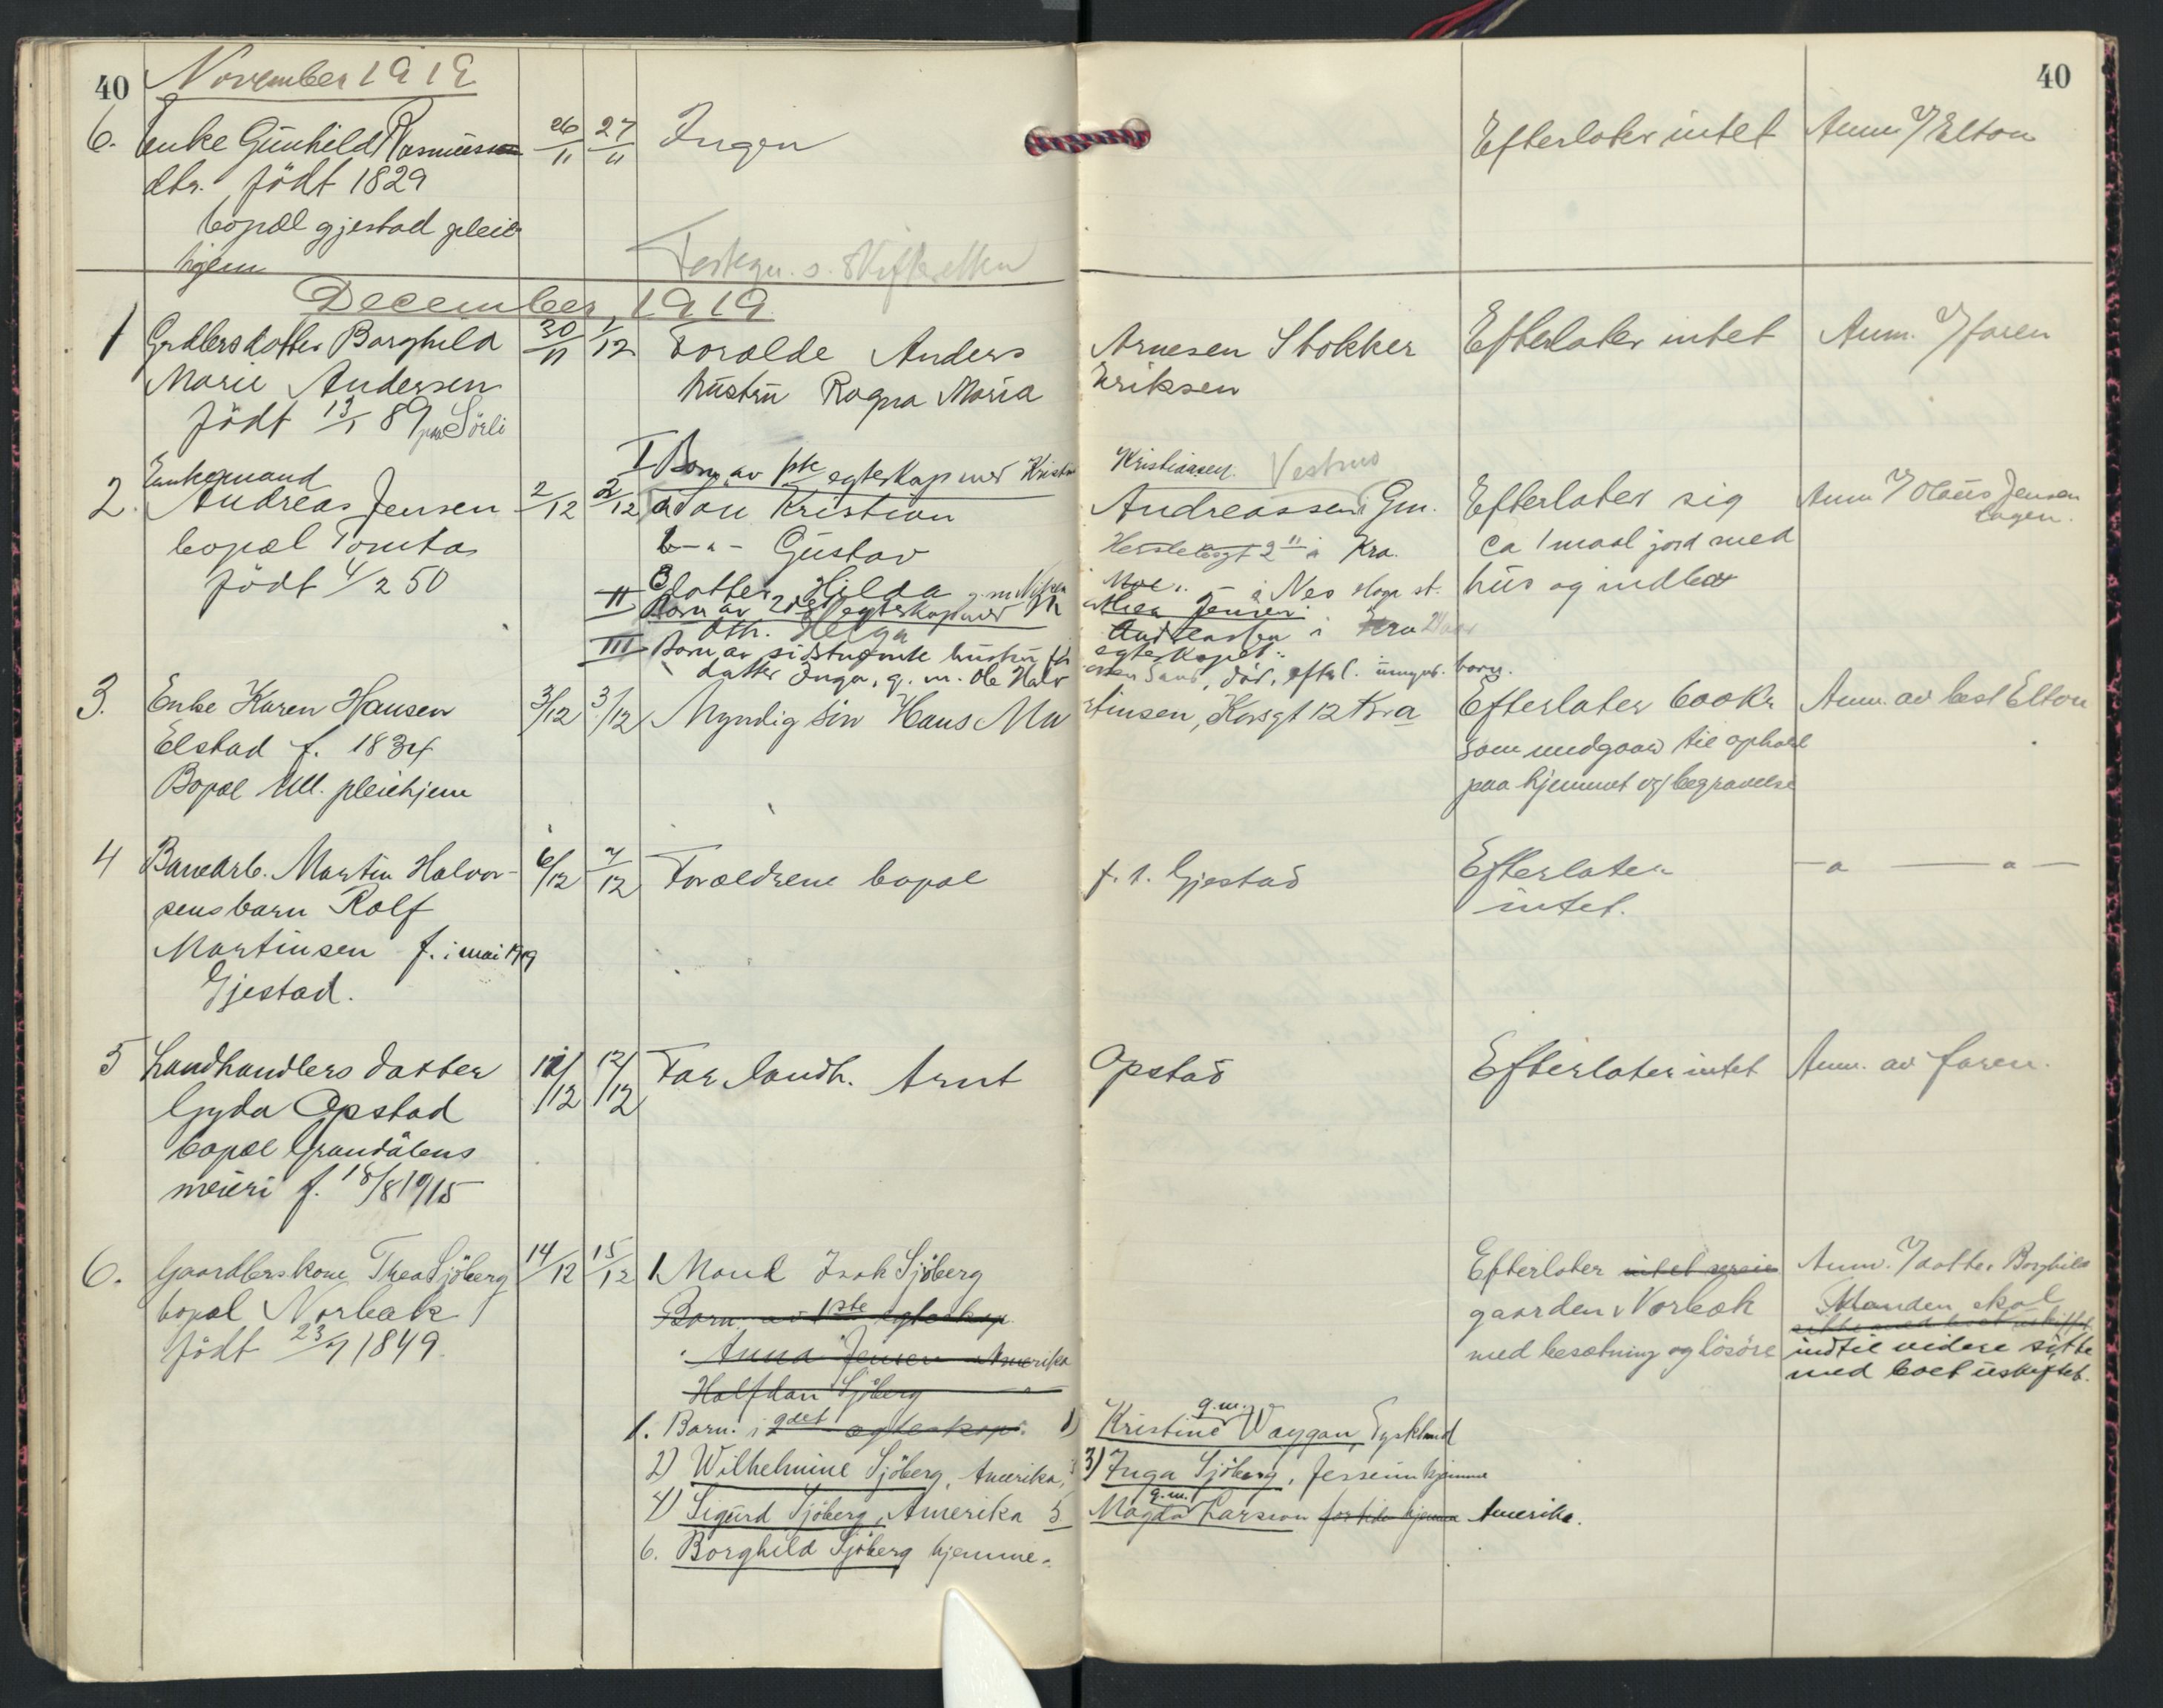 40 November 1919 40
6. Enke Gunhild Rasmus 26/11 27/11 Ingen Efterlater intet Anm. v/ Elton
dtr. födt 1829
bopæl gjestad pleie
hjem
Fortegn. s. Skifteretten
December 1919
1 Grdbrs datter Borghild 30/11 1/12 Forælde Anders Arnesen Stokker Efterlater intet Anm. v/ faren
Marie Andersen hustru Ragna Maria Eriksen
födt 13/1 89 paa Sörli
I Barn av 1ste egteskap med Kristine Kristiansen
Enkemand
2. Andreas Jensen 2/12 2/12 a Søn Kristian Andreassen Gm. Efterlater sig Anm v/ Olaus Jensen
bopæl Tomta b -"- Gustav 2 II i Kra. ca 1 maal jord med
födt 4/2 50 Datter Hilda g. m. i Nes st. hus og indbo
II Barn av 2det egteskap med Jensen
dtr. Helga Andreassen i Kra
III Barn av sidstnævnte hustru før egteskapet:
datter Inga, g. m. Ole Halv Sand, död, efterl. umynd. barn.
3. Enke Karen Hansen 3/12 3/12 Myndig sön Hans Martinsen, Korsgt 12 Kra Efterlater 600 Kr Anm. av best Elton
Elstad f. 1834 som medgaar til ophold
Bopæl Ull. pleiehjem paa hjemmet og begravelse
4 Banearb. Martin Halvor- 6/12 7/12 Forældrene bopæl f. t. Gjestad Efterlater -"- -"-
sens barn Rolf intet.
Martinsen f. i mai 1919
Gjestad.
5 Landhandlers datter 12/12 Far landh. Arnt Opstad Efterlater intet Anm. av faren.
Gyda Opstad
bopæl Grandalens
meieri f. 18/8 1915
6. Gaardbrs kone Thea Sjöberg 14/12 15/12 1 Mand Isak Sjöberg Efterlater intet Anm. v/ datter Borghild
bopæl Norbæk Barn av 1ste egteskap gaarden Norbæk Manden skal
födt 23/7 1849. Anna Jensen Amerika med besætning og lösöre indtil videre sitte
Halfdan Sjöberg -"- med boet uskiftet.
1. Barn i 2det egteskap: 1) Kristine g.m. Waygan, Tyskland
2) Wilhelmine Sjöberg, Amerika, 3) Inga Sjöberg, hjemme
4) Sigurd Sjöberg, Amerika 5 Magda g.m. Larsson for tiden hjemme Amerika.
6. Borghild Sjöberg hjemme.